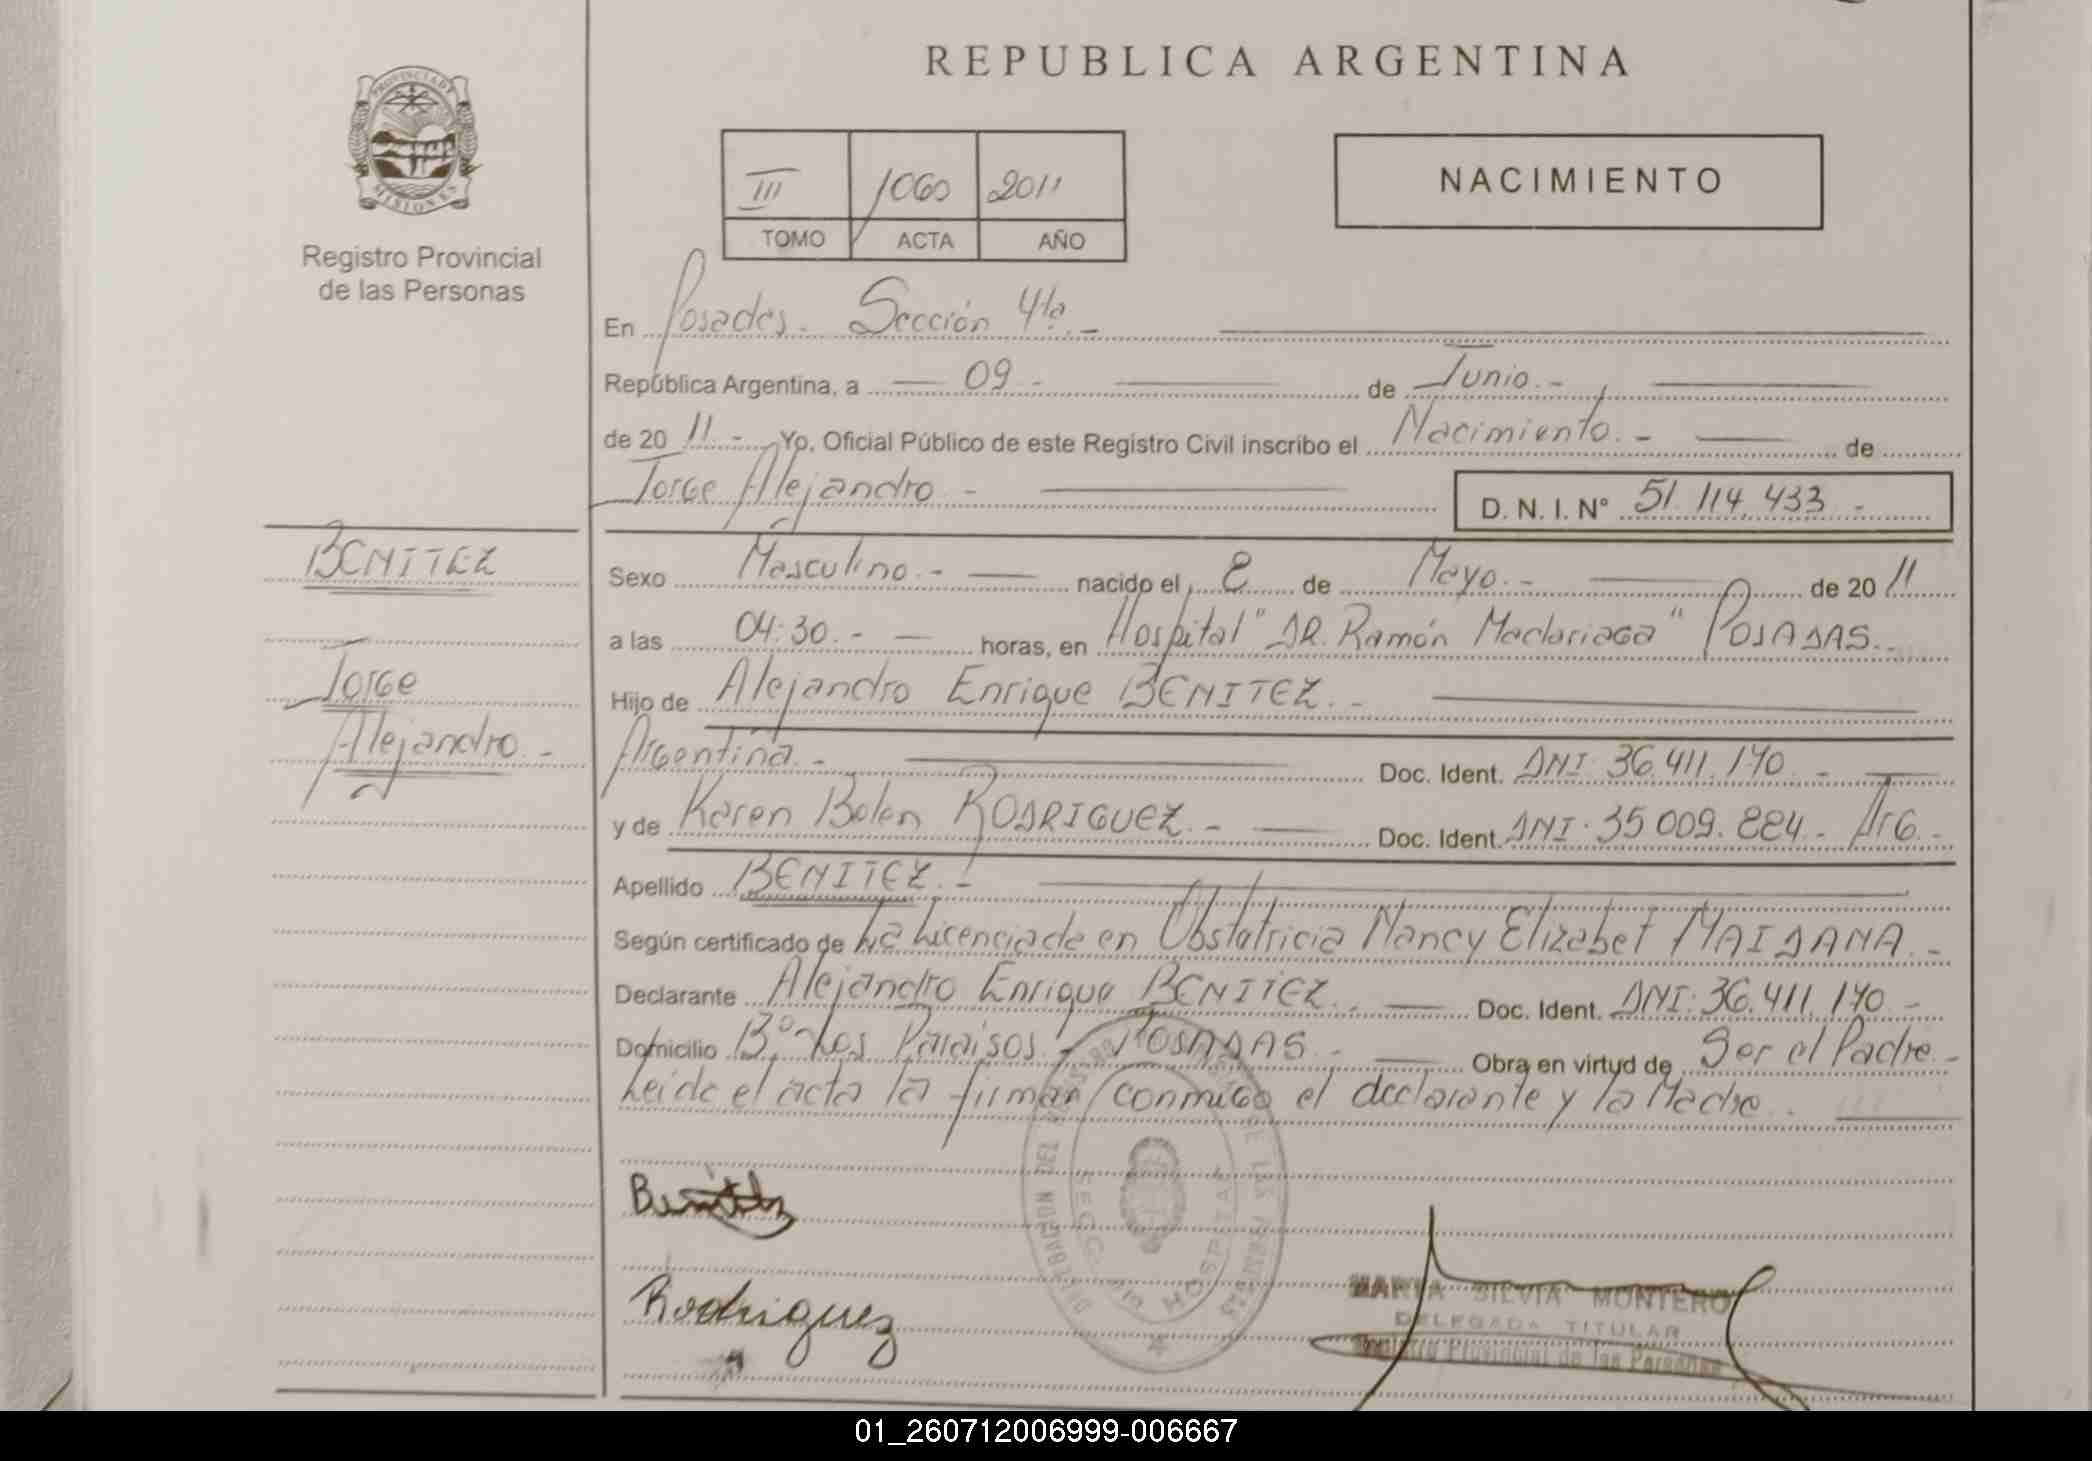 REPUBLICA ARGENTINA
PROVINCIA DE
MISIONES
Registro Provincial
de las Personas
III 1060 2011
TOMO ACTA AÑO
NACIMIENTO
En Posadas. Sección 4ta.-
República Argentina, a 09.- de Junio.-
de 20 11.- Yo, Oficial Público de este Registro Civil inscribo el Nacimiento.- de
Jorge Alejandro.-
D. N. I. N° 51.114.433.-
BENITEZ
Jorge
Alejandro.-
Sexo Masculino.- nacido el 8 de Mayo.- de 20 11
a las 04:30.- horas, en Hospital "DR. Ramón Madariaga" POSADAS.-
Hijo de Alejandro Enrique BENITEZ.-
Argentina.- Doc. Ident. DNI: 36.411.140.-
y de Karen Belen RODRIGUEZ.- Doc. Ident. DNI: 35.009.884.- Arg.-
Apellido BENITEZ.-
Según certificado de La Licenciada en Obstetricia Nancy Elizabet MAIDANA.-
Declarante Alejandro Enrique BENITEZ.- Doc. Ident. DNI: 36.411.140.-
Domicilio B° Los Paraisos.- POSADAS.- Obra en virtud de Ser el Padre.-
Leida el acta la firman conmigo el declarante y la Madre.
Benitez
Rodriguez
SECC. HOSPITAL
MARIA SILVIA MONTERO
DELEGADA TITULAR
Registro Provincial de las Personas
01_260712006999-006667